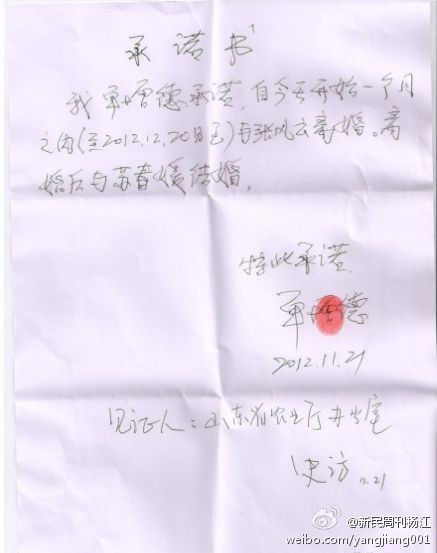 承诺书
我单增德承诺,自今天开始一个月
之内(至2012.12.20日至)与张风云离婚。离
婚后与苏春媛结婚,
特此承诺.
单增德
2012.11.21
见证人:山东省农业厅办公室
史访 11.21
@新民周刊杨江
weibo.com/yangjiang001